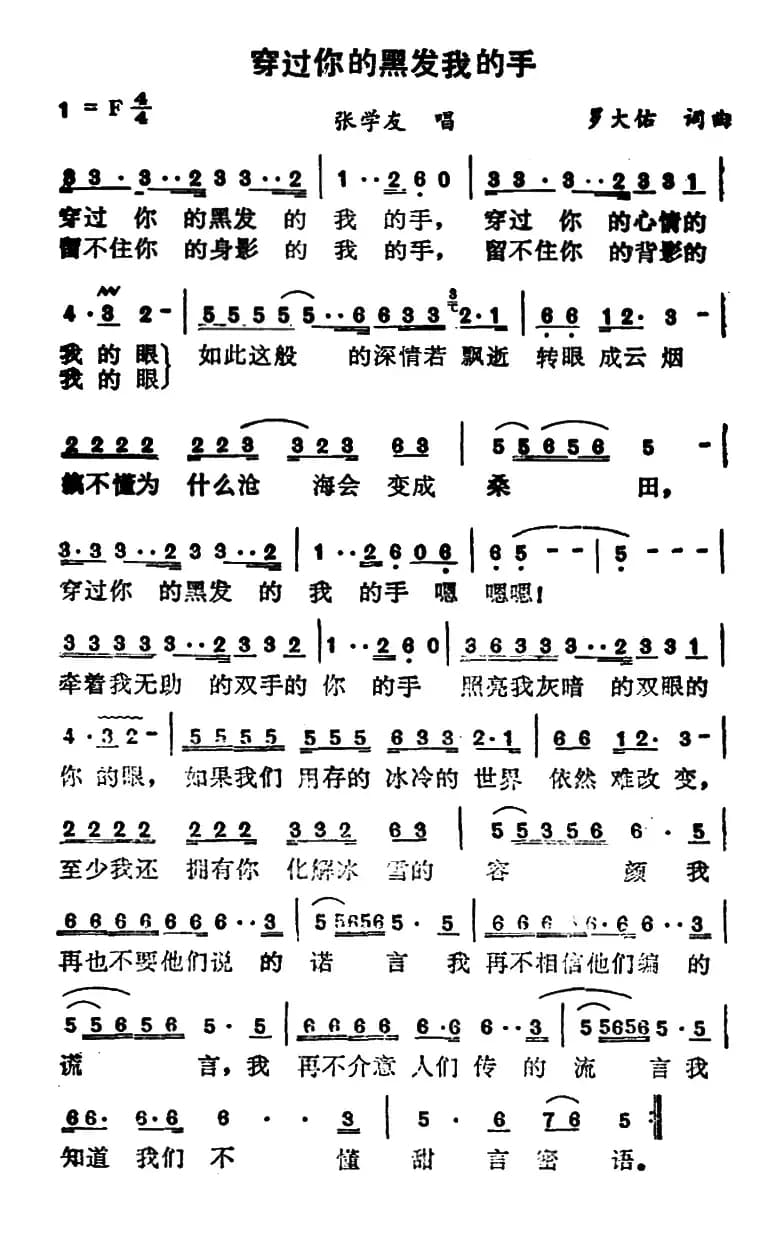 穿过你的黑发我的手
1 = F 4/4
张学友 唱
罗大佑 词曲
3 3 · 3 · · 2 3 3 · · 2 | 1 · · 2 6 0 | 3 3 · 3 · · 2 3 3 1 |
穿过 你 的黑发 的 我 的手, 穿过 你 的心情的
留不住你 的身影 的 我 的手, 留不住你 的背影的
4 · 3 2 - | 5 5 5 5 5 · · 6 6 3 3 2 · 1 | 6 6 1 2 · 3 - |
我 的 眼} 如此这般 的深情若 飘逝 转眼 成云 烟
我 的 眼}
2 2 2 2 2 2 3 3 2 3 6 3 | 5 5 6 5 6 5 - |
搞不懂为 什么沧 海会 变成 桑 田,
3 · 3 3 · · 2 3 3 · · 2 | 1 · · 2 6 0 6 | 6 5 - - | 5 - - - |
穿过你 的黑发 的 我 的手 嗯 嗯嗯!
3 3 3 3 3 · · 2 3 3 2 | 1 · · 2 6 0 | 3 6 3 3 3 · · 2 3 3 1 |
牵着我无助 的双手的 你 的手 照亮我灰暗 的双眼的
4 · 3 2 - | 5 5 5 5 5 5 5 6 3 3 2 · 1 | 6 6 1 2 · 3 - |
你 的眼, 如果我们 用存的 冰冷的 世界 依然 难改 变,
2 2 2 2 2 2 2 3 3 2 6 3 | 5 5 3 5 6 6 · 5 |
至少我还 拥有你 化解冰 雪的 容 颜 我
6 6 6 6 6 6 6 · · 3 | 5 5 6 5 6 5 · 5 | 6 6 6 6 · 6 6 · · 3 |
再也不要他们说 的 诺 言 我 再不相信他们编 的
5 5 6 5 6 5 · 5 | 6 6 6 6 6 · 6 6 · · 3 | 5 5 6 5 6 5 · 5 |
谎 言,我 再不介意 人们 传 的 流 言我
6 6 · 6 · 6 6 · · 3 | 5 · 6 7 6 5 :|
知道 我们 不 懂 甜 言密 语。